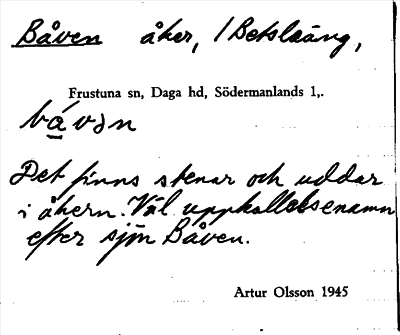 Båven åker, 1 Betslaäng,
Frustuna sn, Daga hd, Södermanlands l,.
bá̱vən
Det finns stenar och uddar
i åkern. Väl uppkallelsenamn
efter sjön Båven.
Artur Olsson 1945